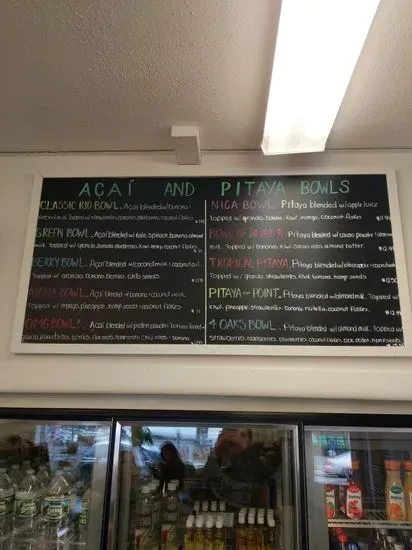 AÇAÍ AND PITAYA BOWLS
CLASSIC RIO BOWL. Açaí blended w/banana +
Topped w/ strawberries, banana, blueberries, coconut flakes
GREEN BOWL. Açaí blended w/ kale, spinach, banana, almond
milk. Topped w/ granola, banana, blueberries, kiwi, hemp, coconut flakes
BERRY BOWL. Açaí blended w/coconut milk + coconut oil
Topped w/ granola, banana, berries, chia seeds.
ALOHA BOWL. Açaí blended w/ banana + coconut milk.
Topped w/ mango, pineapple, hemp seeds + coconut flakes
OMG BOWL!. Açaí blended w/ banana
NIGA BOWL. Pitaya blended w/apple juice
Topped w/ granola, banana, kiwi, mango, coconut flakes $11.99
BOWL OF Pitaya blended w/cacao powder + almond
milk. Topped w/ banana, kiwi, cacao nibs, almond butter. $12.99
TROPICAL PITAYA. Pitaya blended w/pineapple + coconut milk
Topped w/ granola, strawberries, kiwi, banana, hemp seeds $12.50
PITAYA ON POINT. Pitaya blended w/almond milk. Topped w/
kiwi, pineapple, strawberries, banana, nutella, coconut flakes $12.99
4 OAKS BOWL. Pitaya blended w/ almond milk. Topped w/
strawberries, raspberries, blueberries, coconut flakes, bee pollen, hemp